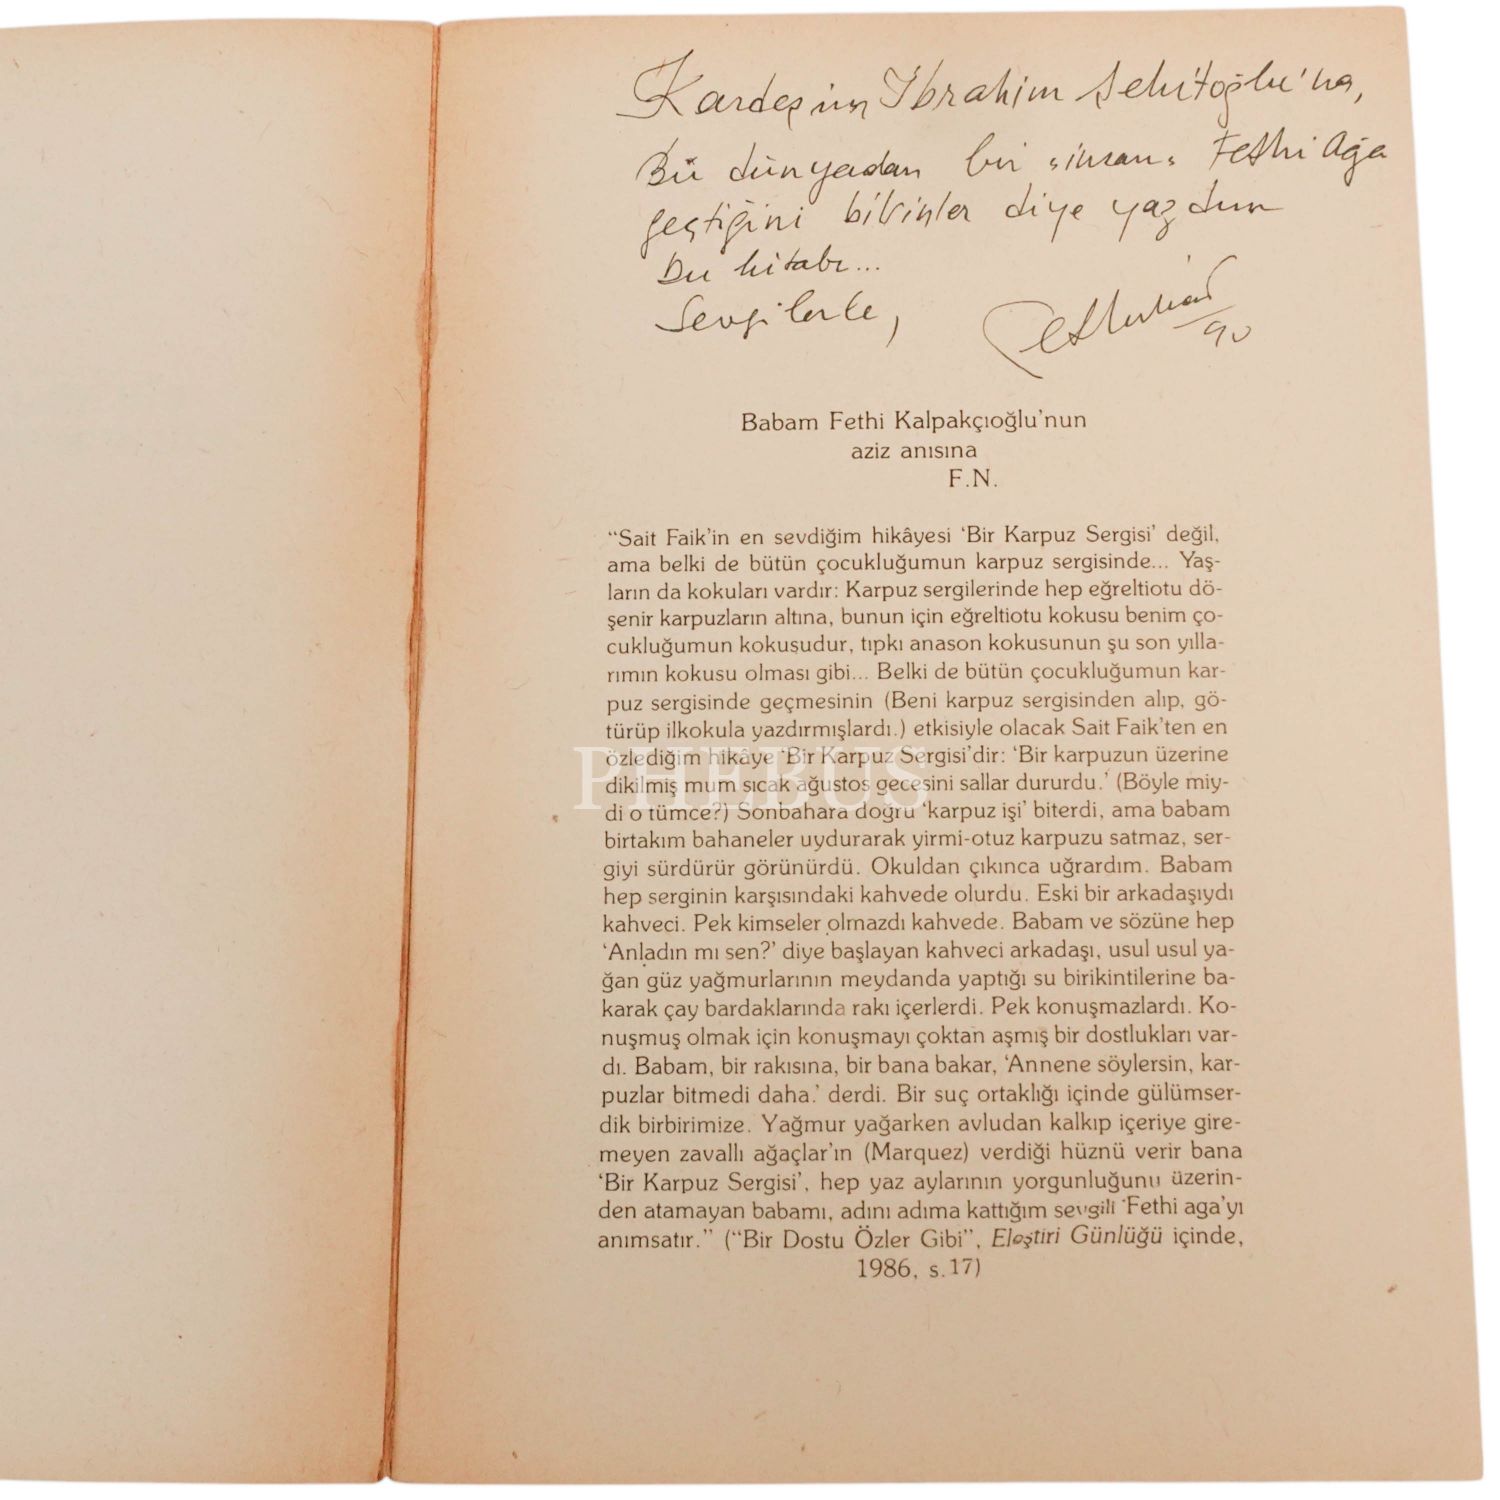 Kardeşim İbrahim Şehitoğlu'na,
Bu dünyadan bir "insan" Fethi Ağa
geçtiğini bilsinler diye yazdım
bu kitabı...
Sevgilerle,
90
Babam Fethi Kalpakçıoğlu'nun
aziz anısına
F.N.
“Sait Faik'in en sevdiğim hikâyesi ‘Bir Karpuz Sergisi’ değil,
ama belki de bütün çocukluğumun karpuz sergisinde... Yaş-
ların da kokuları vardır: Karpuz sergilerinde hep eğreltiotu dö-
şenir karpuzların altına, bunun için eğreltiotu kokusu benim ço-
cukluğumun kokusudur, tıpkı anason kokusunun şu son yılla-
rımın kokusu olması gibi... Belki de bütün çocukluğumun kar-
puz sergisinde geçmesinin (Beni karpuz sergisinden alıp, gö-
türüp ilkokula yazdırmışlardı.) etkisiyle olacak Sait Faik'ten en
özlediğim hikâye ‘Bir Karpuz Sergisi’dir: ‘Bir karpuzun üzerine
dikilmiş mum sıcak ağustos gecesini sallar dururdu.’ (Böyle miy-
di o tümce?) Sonbahara doğru ‘karpuz işi’ biterdi, ama babam
birtakım bahaneler uydurarak yirmi-otuz karpuzu satmaz, ser-
giyi sürdürür görünürdü. Okuldan çıkınca uğrardım. Babam
hep serginin karşısındaki kahvede olurdu. Eski bir arkadaşıydı
kahveci. Pek kimseler olmazdı kahvede. Babam ve sözüne hep
‘Anladın mı sen?’ diye başlayan kahveci arkadaşı, usul usul ya-
ğan güz yağmurlarının meydanda yaptığı su birikintilerine ba-
karak çay bardaklarında rakı içerlerdi. Pek konuşmazlardı. Ko-
nuşmuş olmak için konuşmayı çoktan aşmış bir dostlukları var-
dı. Babam, bir rakısına, bir bana bakar, ‘Annene söylersin, kar-
puzlar bitmedi daha.’ derdi. Bir suç ortaklığı içinde gülümser-
dik birbirimize. Yağmur yağarken avludan kalkıp içeriye gire-
meyen zavallı ağaçlar'ın (Marquez) verdiği hüznü verir bana
‘Bir Karpuz Sergisi’, hep yaz aylarının yorgunluğunu üzerin-
den atamayan babamı, adını adıma kattığım sevgili ‘Fethi aga’yı
anımsatır.” (“Bir Dostu Özler Gibi”, Eleştiri Günlüğü içinde,
1986, s.17)
PHEBUS